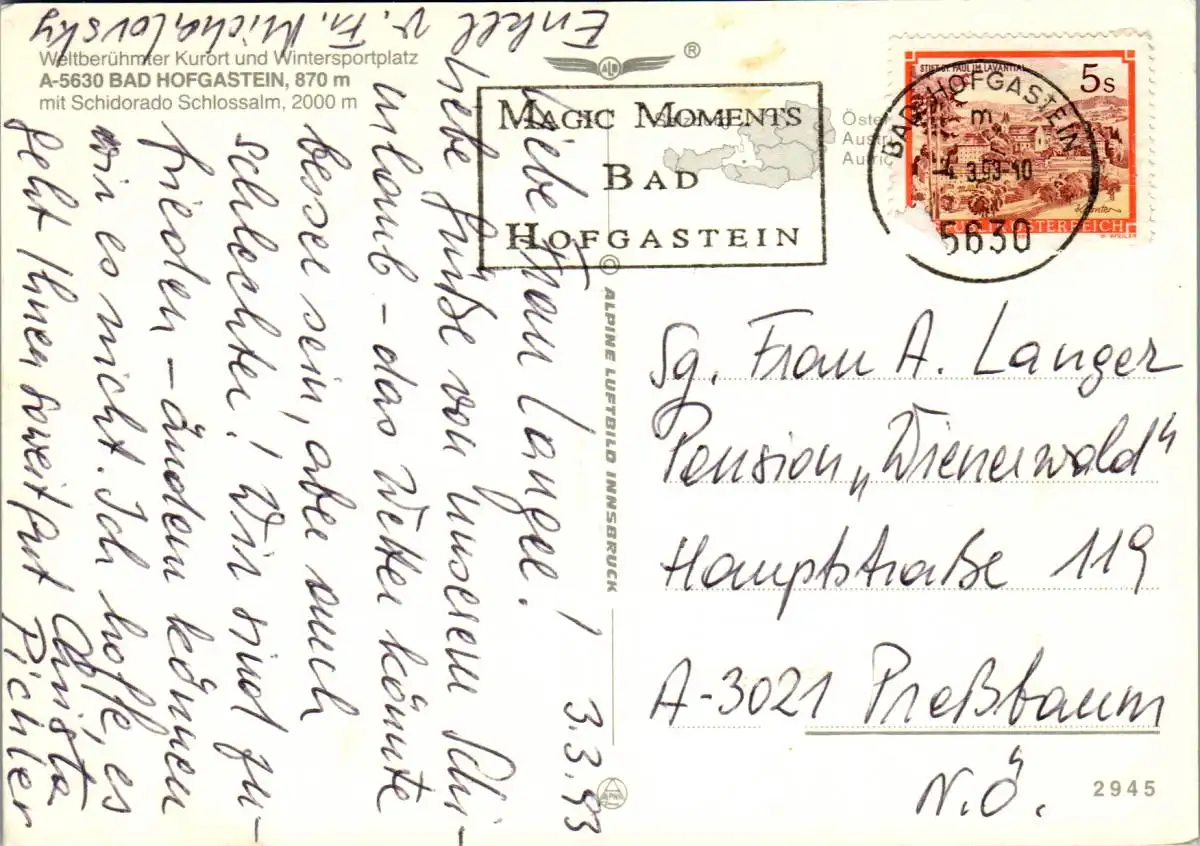 Weltberühmter Kurort und Wintersportplatz
A-5630 BAD HOFGASTEIN, 870 m
mit Schidorado Schlossalm, 2000 m
®
MAGIC MOMENTS
BAD
HOFGASTEIN
Öste
Aust
STIFT ST. PAUL IM LAVANTTAL
5s
REPUBLIK ÖSTERREICH
BAD HOFGASTEIN
5630
© ALPINE LUFTBILD INNSBRUCK
3.3.93
Liebe Frau Langer!
Liebe Grüße von unserem Schi-
urlaub – das Wetter könnte
besser sein, aber auch
schlechter! Wir sind zu-
frieden – ändern können
wir es nicht. Ich hoffe, es
geht Ihnen soweit gut
Christa
Pichler
Enkel v. Fr. Michalovsky
Sg. Frau A. Langer
Pension „Wienerwald"
Hauptstraße 119
A-3021 Preßbaum
N.Ö.
2945